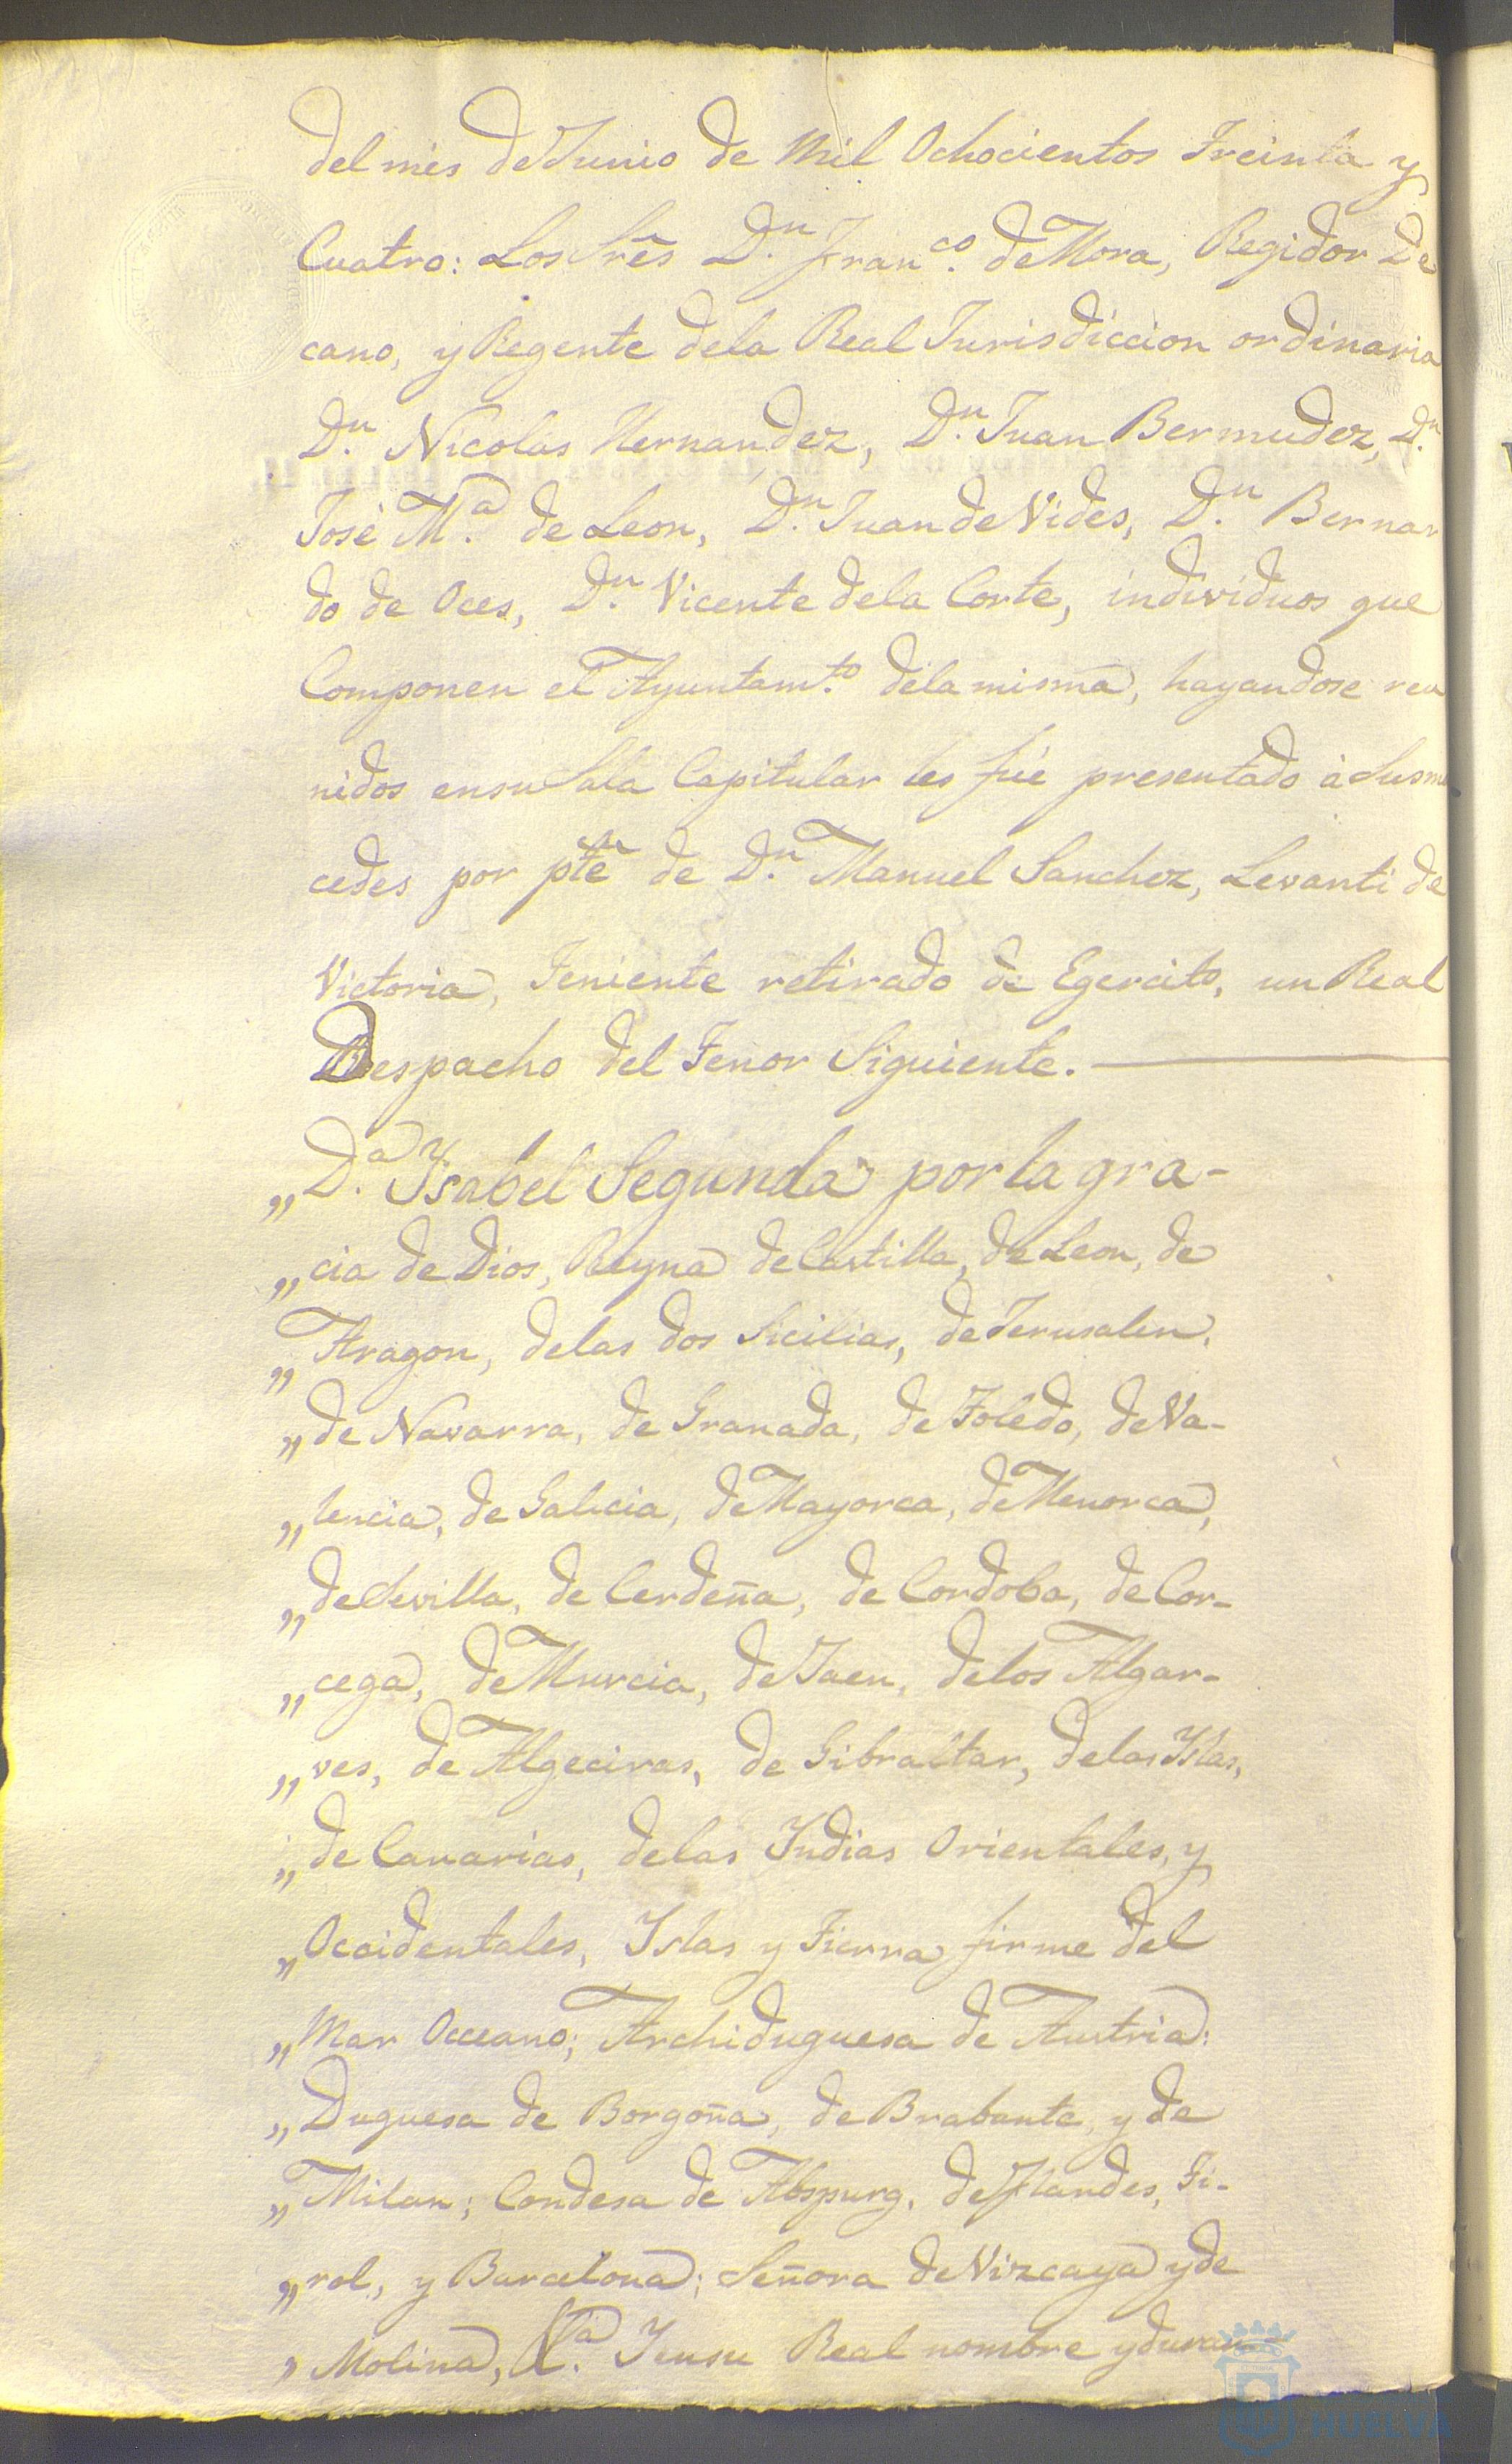 del mes de Junio de Mil Ochocientos Treinta y
Cuatro: Los Sres Dn. Franco. de Mora, Regidor De
cano, y Regente dela Real Jurisdiccion ordinaria
Dn. Nicolas Hernandez, Dn. Juan Bermudez, Dn.
José Ma. de Leon, Dn. Juan de Vides, Dn. Bernar
do de Oces, Dn. Vicente dela Corte, individuos que
Componen el Ayuntamto. dela misma, hayandose reu
nidos ensu Sala Capitular les fué presentado à Susme
cedes por pte de Dn. Manuel Sanchez, Levanti de
Victoria, Teniente retirado de Egercito, un Real
Despacho del Tenor Siguiente.
„Da. Ysabel Segunda por la gra-
„cia de Dios, Reyna de Castilla, de Leon, de
„Aragon, delas dos Sicilias, de Jerusalen,
„de Navarra, de Granada, de Toledo, de Va-
„lencia, de Galicia, de Mayorca, de Menorca,
„de Sevilla, de Cerdeña, de Cordoba, de Cor-
„cega, de Murcia, de Jaen, delos Algar-
„ves, de Algeciras, de Gibraltar, delas Yslas,
„de Canarias, delas Yndias Orientales, y
„Occidentales, Yslas y Tierra firme del
„Mar Occeano; Archiduquesa de Austria:
„Duquesa de Borgoña, de Brabante, y de
„Milan; Condesa de Abspurg, de Flandes, Ti-
„rol, y Barcelona; Señora de Vizcaya y de
„Molina, Ya. Yensu Real nombre yduran
HUELVA